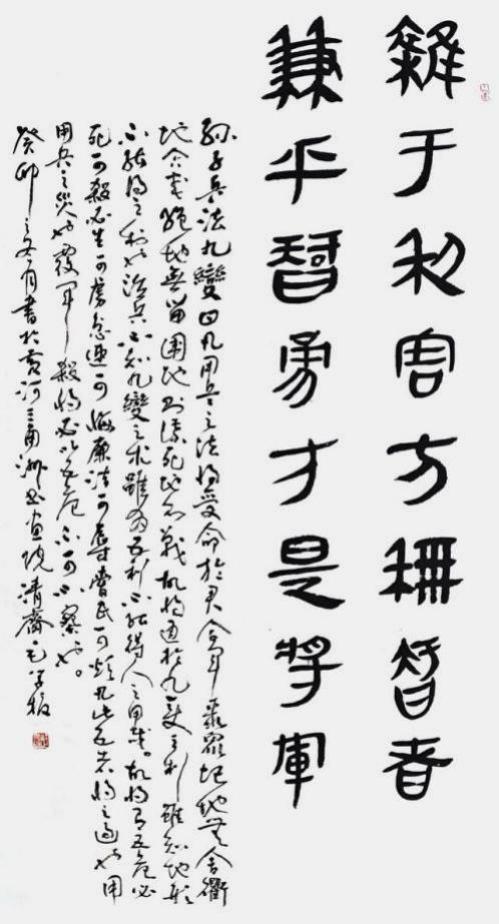 雜于利害方稱智者
兼乎智勇才是将軍
孫子兵法九變曰凡用兵之法将受命於君合軍聚衆圮地無舍衢
地合交絕地無留圍地則謀死地則戰故将通於九變之利雖知地形
不能得之利也治兵不知九變之术雖知五利不能得人之用哉。故将有五危必
死可殺必生可虜忿速可侮廉潔可辱愛民可煩凡此五者将之過也用
用兵之災也覆軍殺将必以五危不可不察也。
癸卯之冬月書於黄河三角洲書画院清齋毛